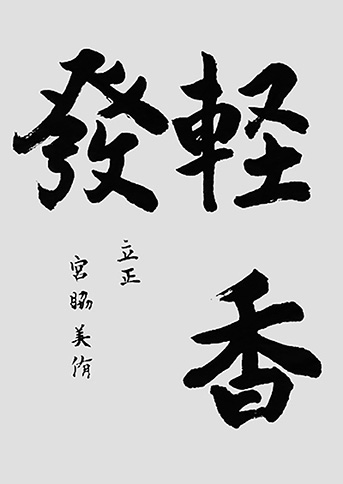 軽香
發
立正
宮脇美侑